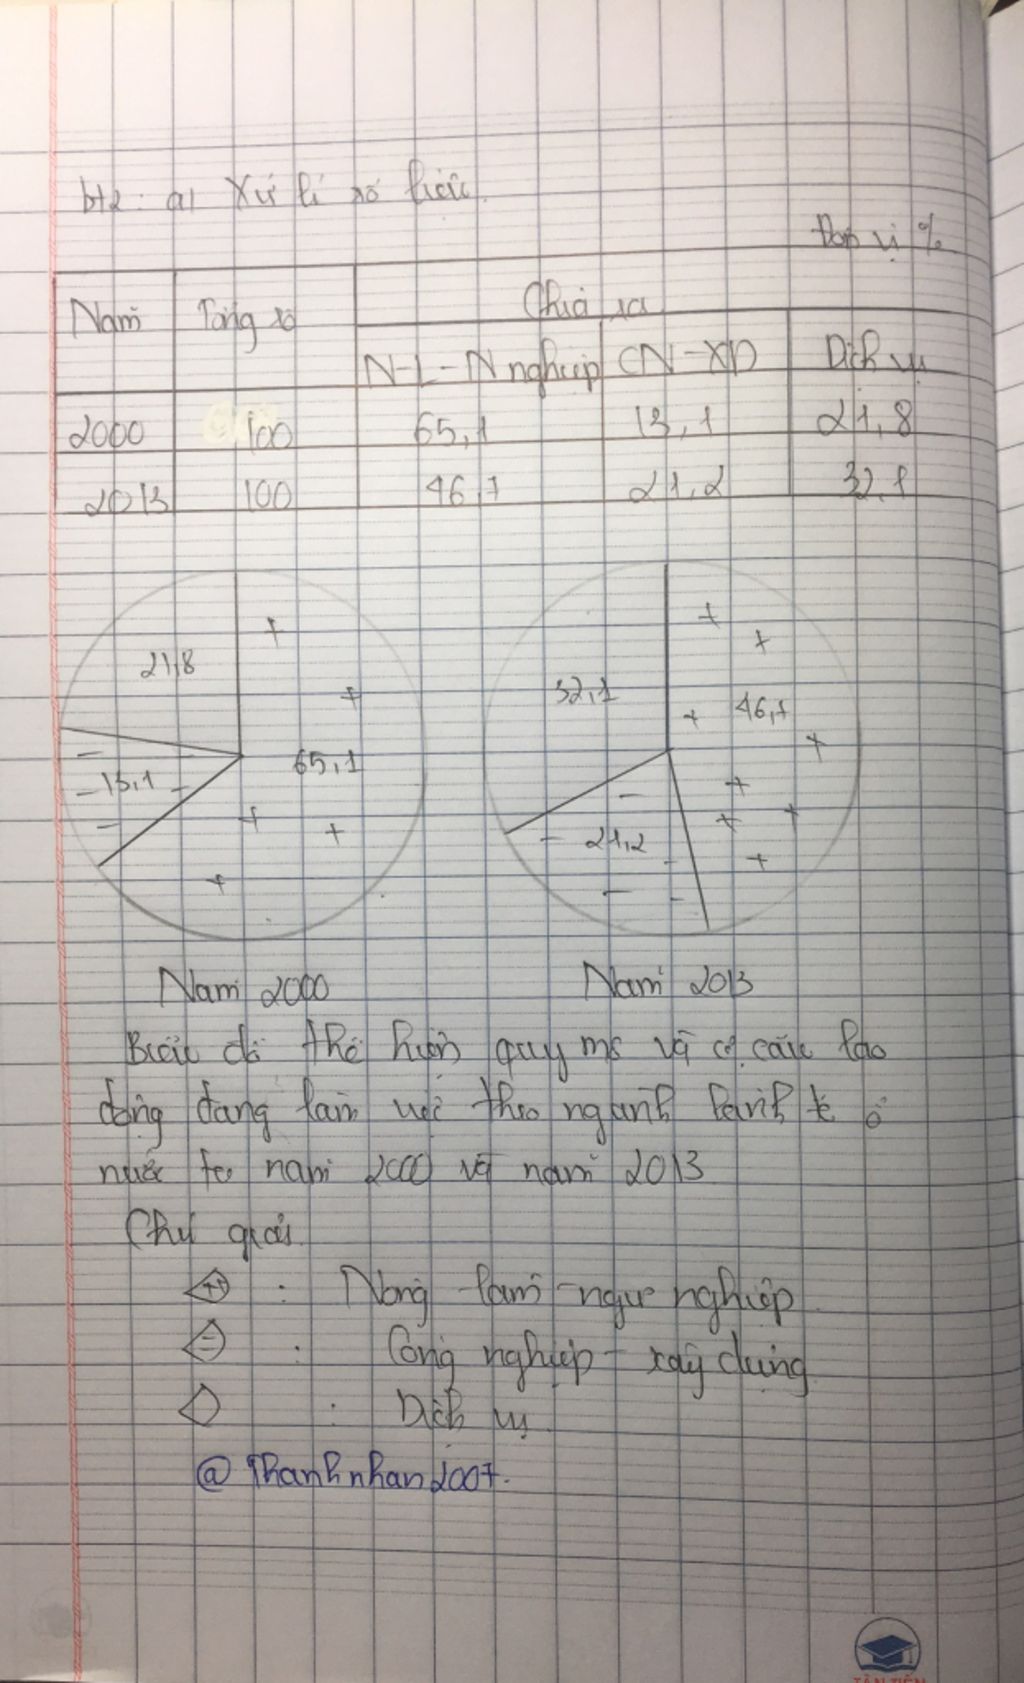 bt2: a) Xử lí số liệu.
Đơn vị %
Năm Tổng số Chia ra
N-L-N nghiệp CN-XD Dịch vụ
2000 100 65,1 13,1 21,8
2013 100 46,7 21,2 32,1
21,8 65,1 13,1
32,1 46,7 21,2
Năm 2000 Năm 2013
Biểu đồ thể hiện quy mô và cơ cấu lao
động đang làm việc theo ngành kinh tế ở
nước ta năm 2000 và năm 2013
Chú giải
++ : Nông lâm-ngư nghiệp
- : Công nghiệp - xây dựng
: Dịch vụ
@Thanhnhan2007.
TÂN TIẾN